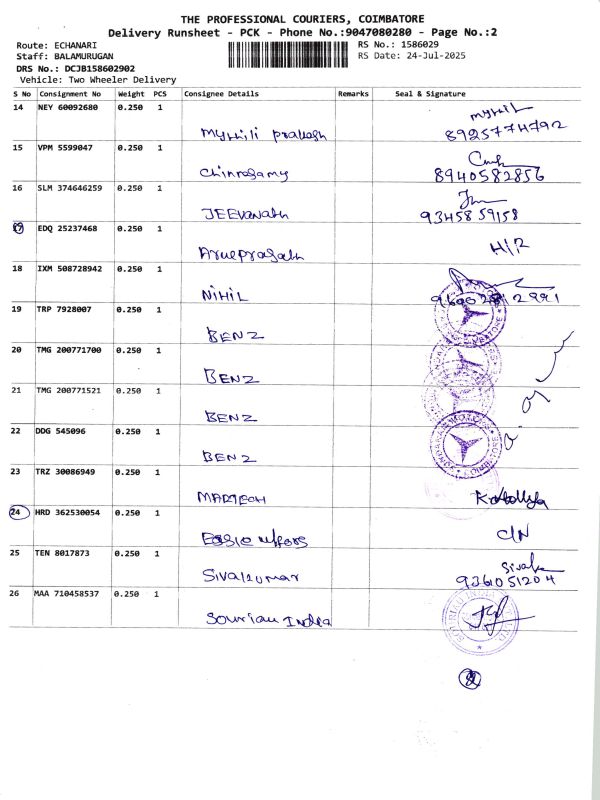 THE PROFESSIONAL COURIERS, COIMBATORE
Delivery Runsheet - PCK - Phone No.:9047080280 - Page No.:2
Route: ECHANARI
RS No.: 1586029
Staff: BALAMURUGAN
RS Date: 24-Jul-2025
DRS No.: DCJB158602902
Vehicle: Two Wheeler Delivery
S No Consignment No Weight PCS Consignee Details Remarks Seal & Signature
14 NEY 60092680 0.250 1
Mythili prakash 8925774792
15 VPM 5599047 0.250 1
Chinnasamy 8940582856
16 SLM 374646259 0.250 1
JEEVANATH 9345859158
17 EDQ 25237468 0.250 1 H/R
Arueprasath
18 IXM 508728942 0.250 1
NIHIL
19 TRP 7928007 0.250 1
BENZ
20 TMG 200771700 0.250 1
BENZ
21 TMG 200771521 0.250 1
BENZ
22 DDG 545096 0.250 1
BENZ
23 TRZ 30086949 0.250 1
MARTECH
24 HRD 362530054 0.250 1
C/N
25 TEN 8017873 0.250 1
Sivakumar 9361051204
26 MAA 710458537 0.250 1
Souriau India